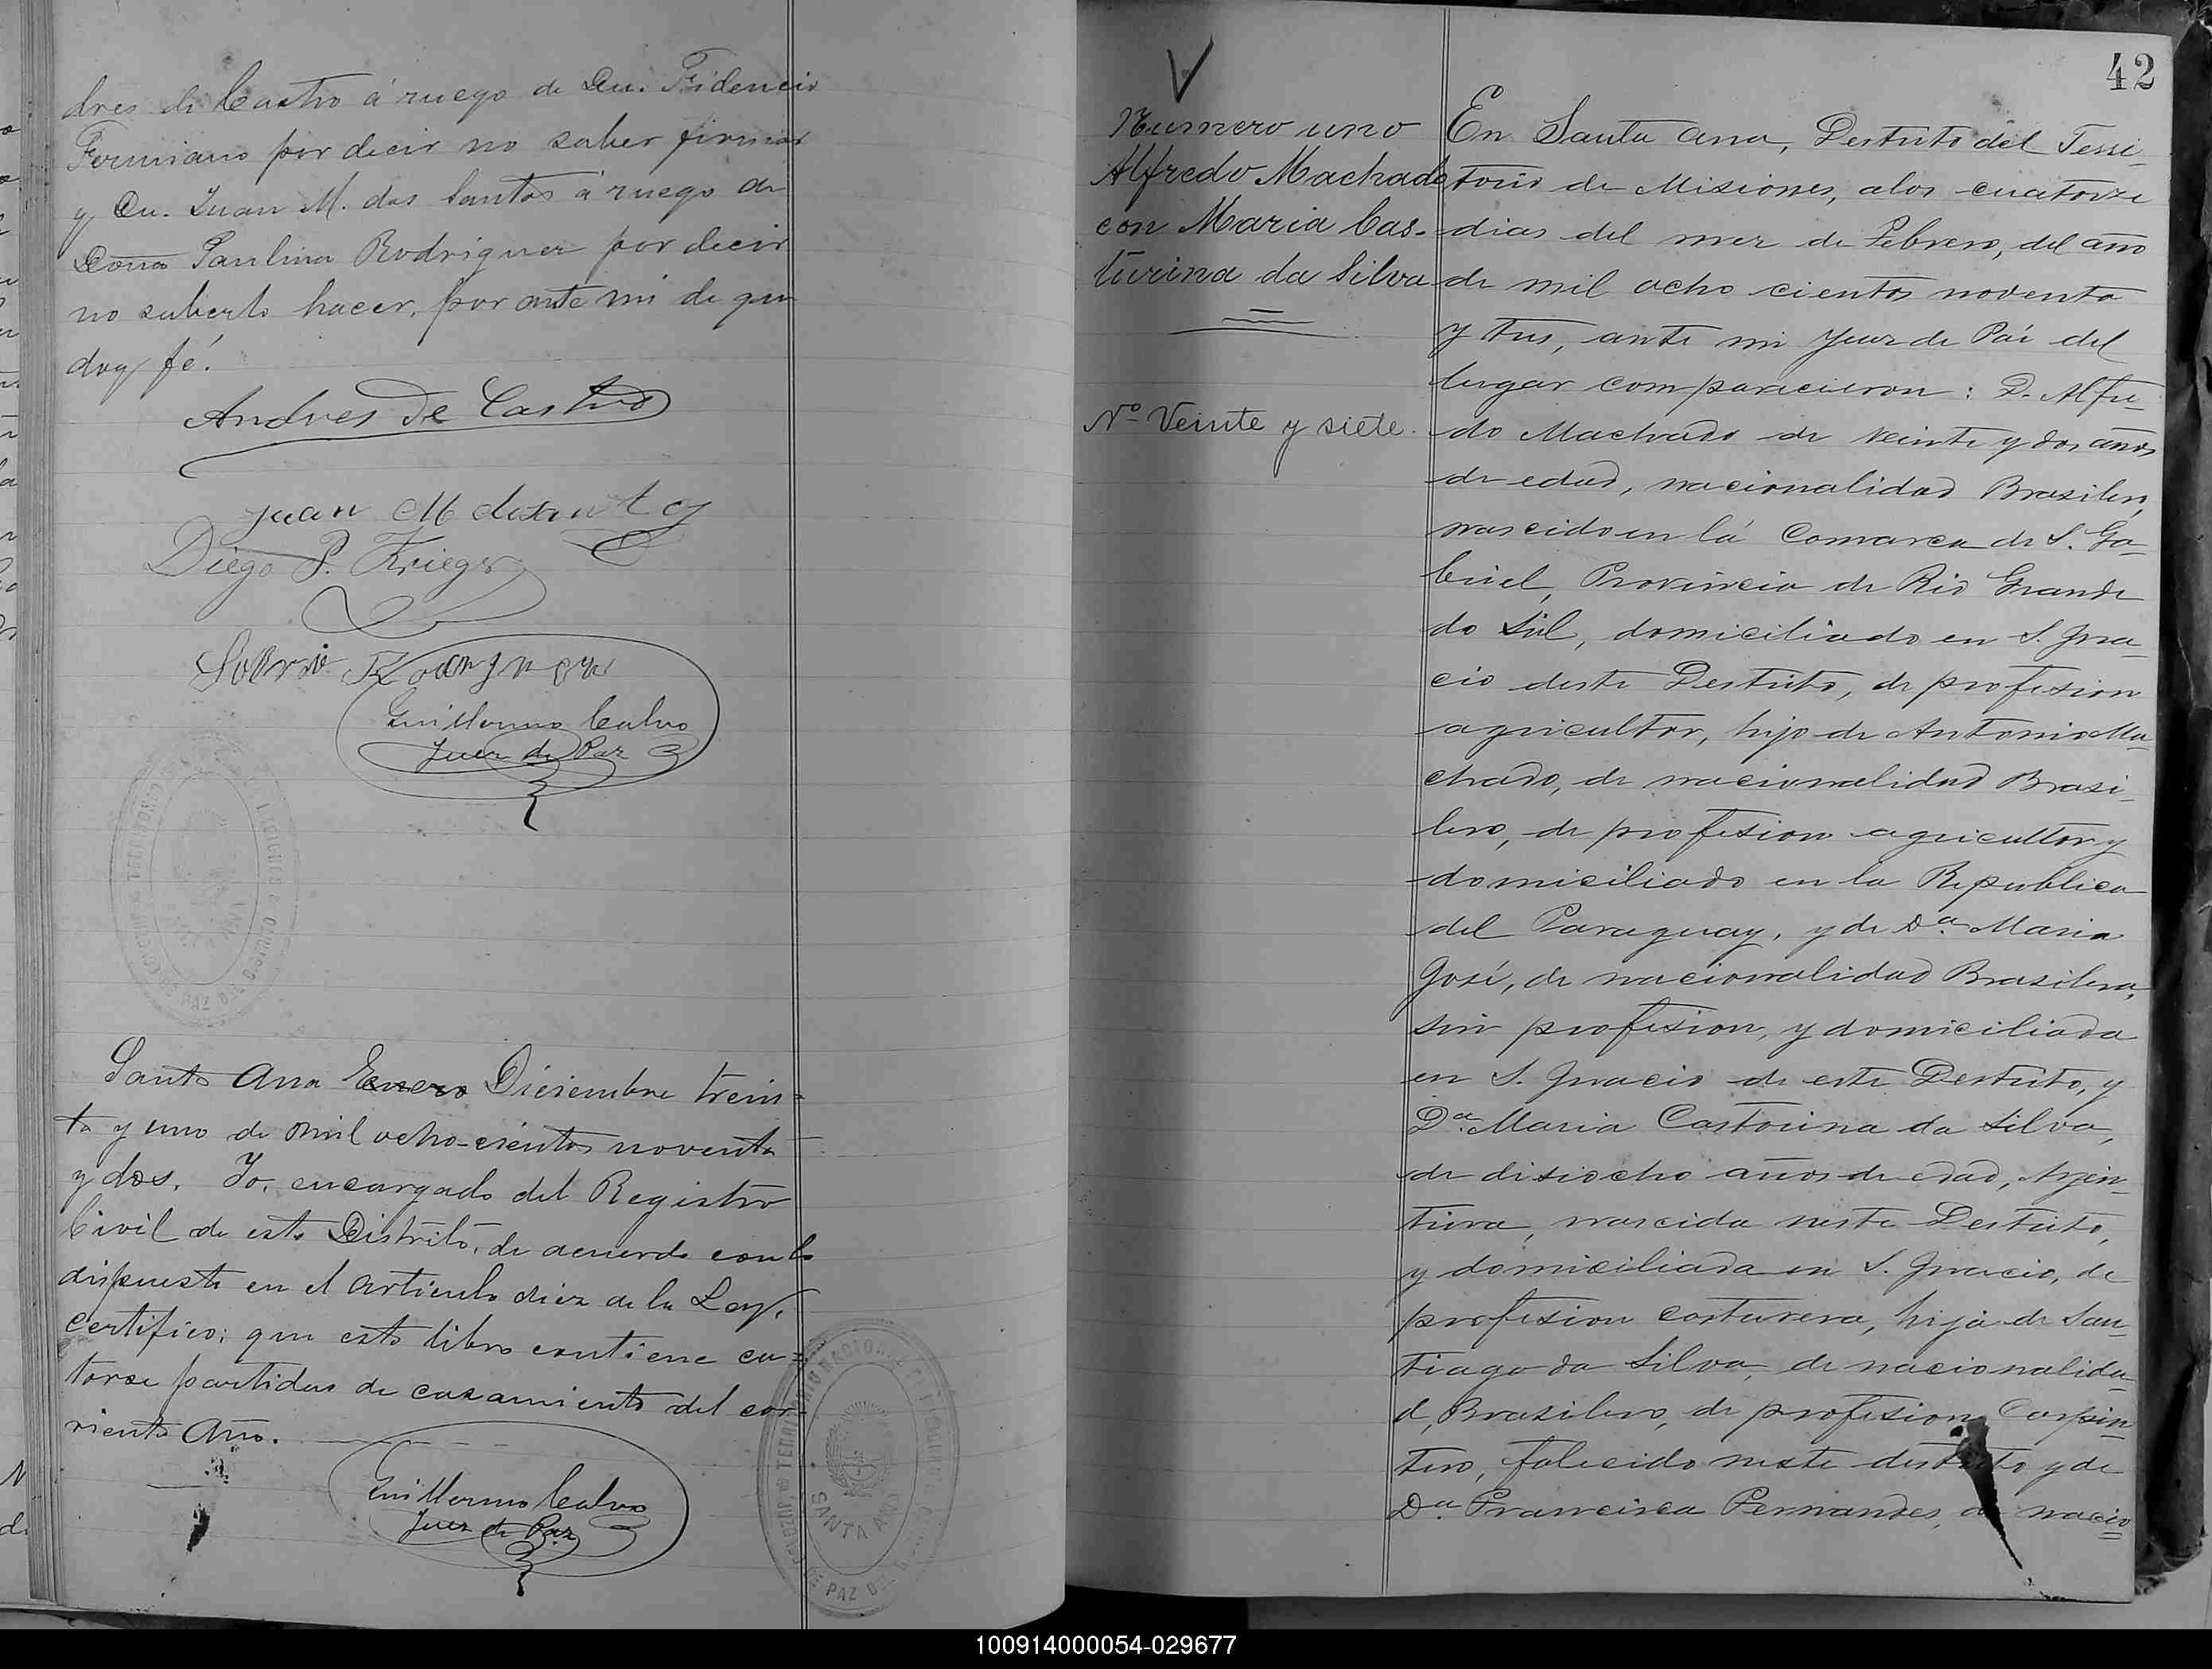 dres de Castro á ruego de Dn. Fidencio
Firmiano por decir no saber firmar
y Dn. Juan M. dos Santos á ruego de
Doña Paulina Rodriguez por decir
no saberlo hacer, por ante mi de que
doy fé.
Andres de Castro
Juan M dosSantos
Diego P. Krieger
Guillermo Calvo
Juez de Paz
Santa Ana Enero Diciembre trein=
ta y uno de mil ocho-cientos noventa
y dos. Yo, encargado del Registro
Civil de este Distrito, de acuerdo con lo
dispuesto en el articulo diez de la Ley,
certifico; que este libro contiene ca=
torse partidas de casamiento del cor=
riente Año.
Guillermo Calvo
Juez de Paz
SANTA ANA
42
Numero uno
Alfredo Machado
con Maria Cas-
turina da Silva
Nº Veinte y siete.
En Santa Ana, Destrito del Terri-
torio de Misiones, alos cuatorze
dias del mez de Febrero, del año
de mil ocho cientos noventa
y tres, ante mi Juez de Paz del
lugar comparecieron: D. Alfre-
do Machado de veinte y dos años
de edad, nacionalidad Brasilero,
nascido en lá Comarca de S. Ga-
briel, Provincia de Rio Grande
do Sul, domiciliado en S. Igna-
cio deste Destrito, de profesion
agricultor, hijo de Antonio Ma-
chado, de nacionalidad Brasi-
lero, de profesion agricultor y
domiciliado en la Republica
del Paraguay, y de Da. Maria
José, de nacionalidad Brasilera,
sin profesion, y domiciliada
en S. Ignacio de este Destrito, y
Da. Maria Castorina da Silva,
de disiocho años de edad, Arjen-
tina, nascida neste Destrito,
y domiciliada en S. Ignacio, de
profesion costurera, hija de San-
tiago da Silva, de nacionalida-
d, Brazilero, de profesion Carpin-
tero, falecido neste destrito y de
Da. Francisca Fernandes, de nacio=
100914000054-029677